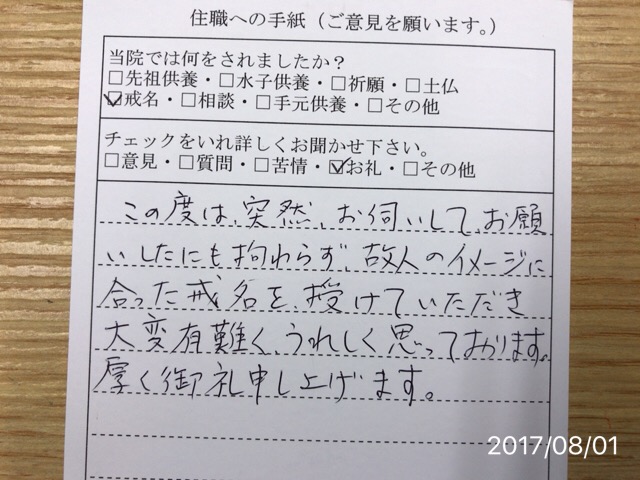 住職への手紙（ご意見を願います。）
当院では何をされましたか？
□先祖供養・□水子供養・□祈願・□土仏
☑戒名・□相談・□手元供養・□その他
チェックをいれ詳しくお聞かせ下さい。
□意見・□質問・□苦情・☑お礼・□その他
この度は、突然、お伺いして、お願
いしたにも拘わらず、故人のイメージに
合った戒名を、授けていただき
大変有難く、うれしく思っております。
厚く御礼申し上げます。
2017/08/01